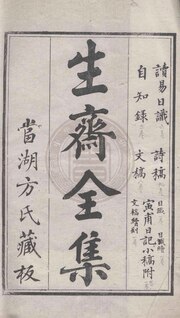 讀易日識 詩稿
自知錄 文稿 寅甫日記小稿附
文稿續刻
生齋全集
當湖方氏藏板